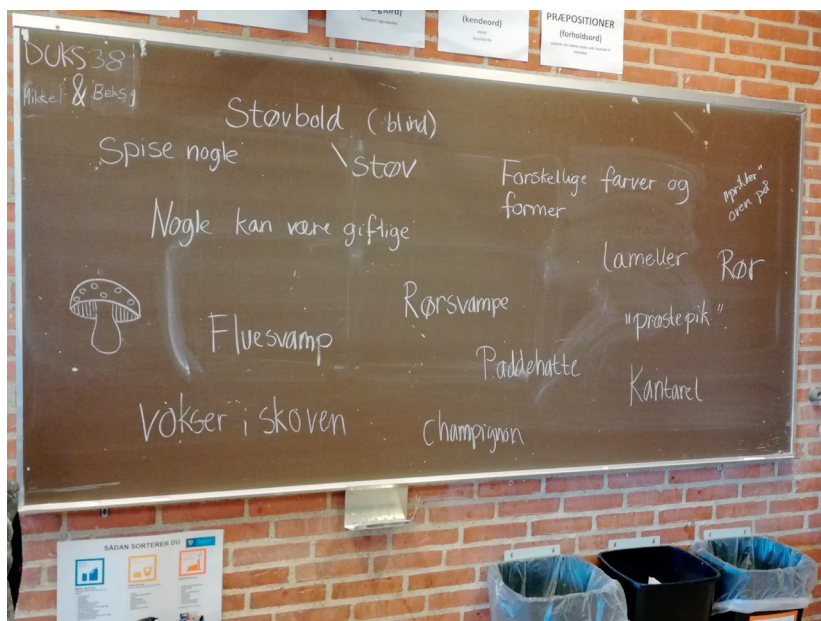 (kendeord)
PRÆPOSITIONER
(forholdsord)
DUKS 38
Mikkel & Beks
Støvbold (blind)
Spise nogle
støv
Forskellige farver og
former
"prikker"
oven på
Nogle kan være giftige
lameller
Rør
Rørsvampe
"præstepik"
Fluesvamp
Paddehatte
Kantarel
Vokser i skoven
champignon
SÅDAN SORTERER DU